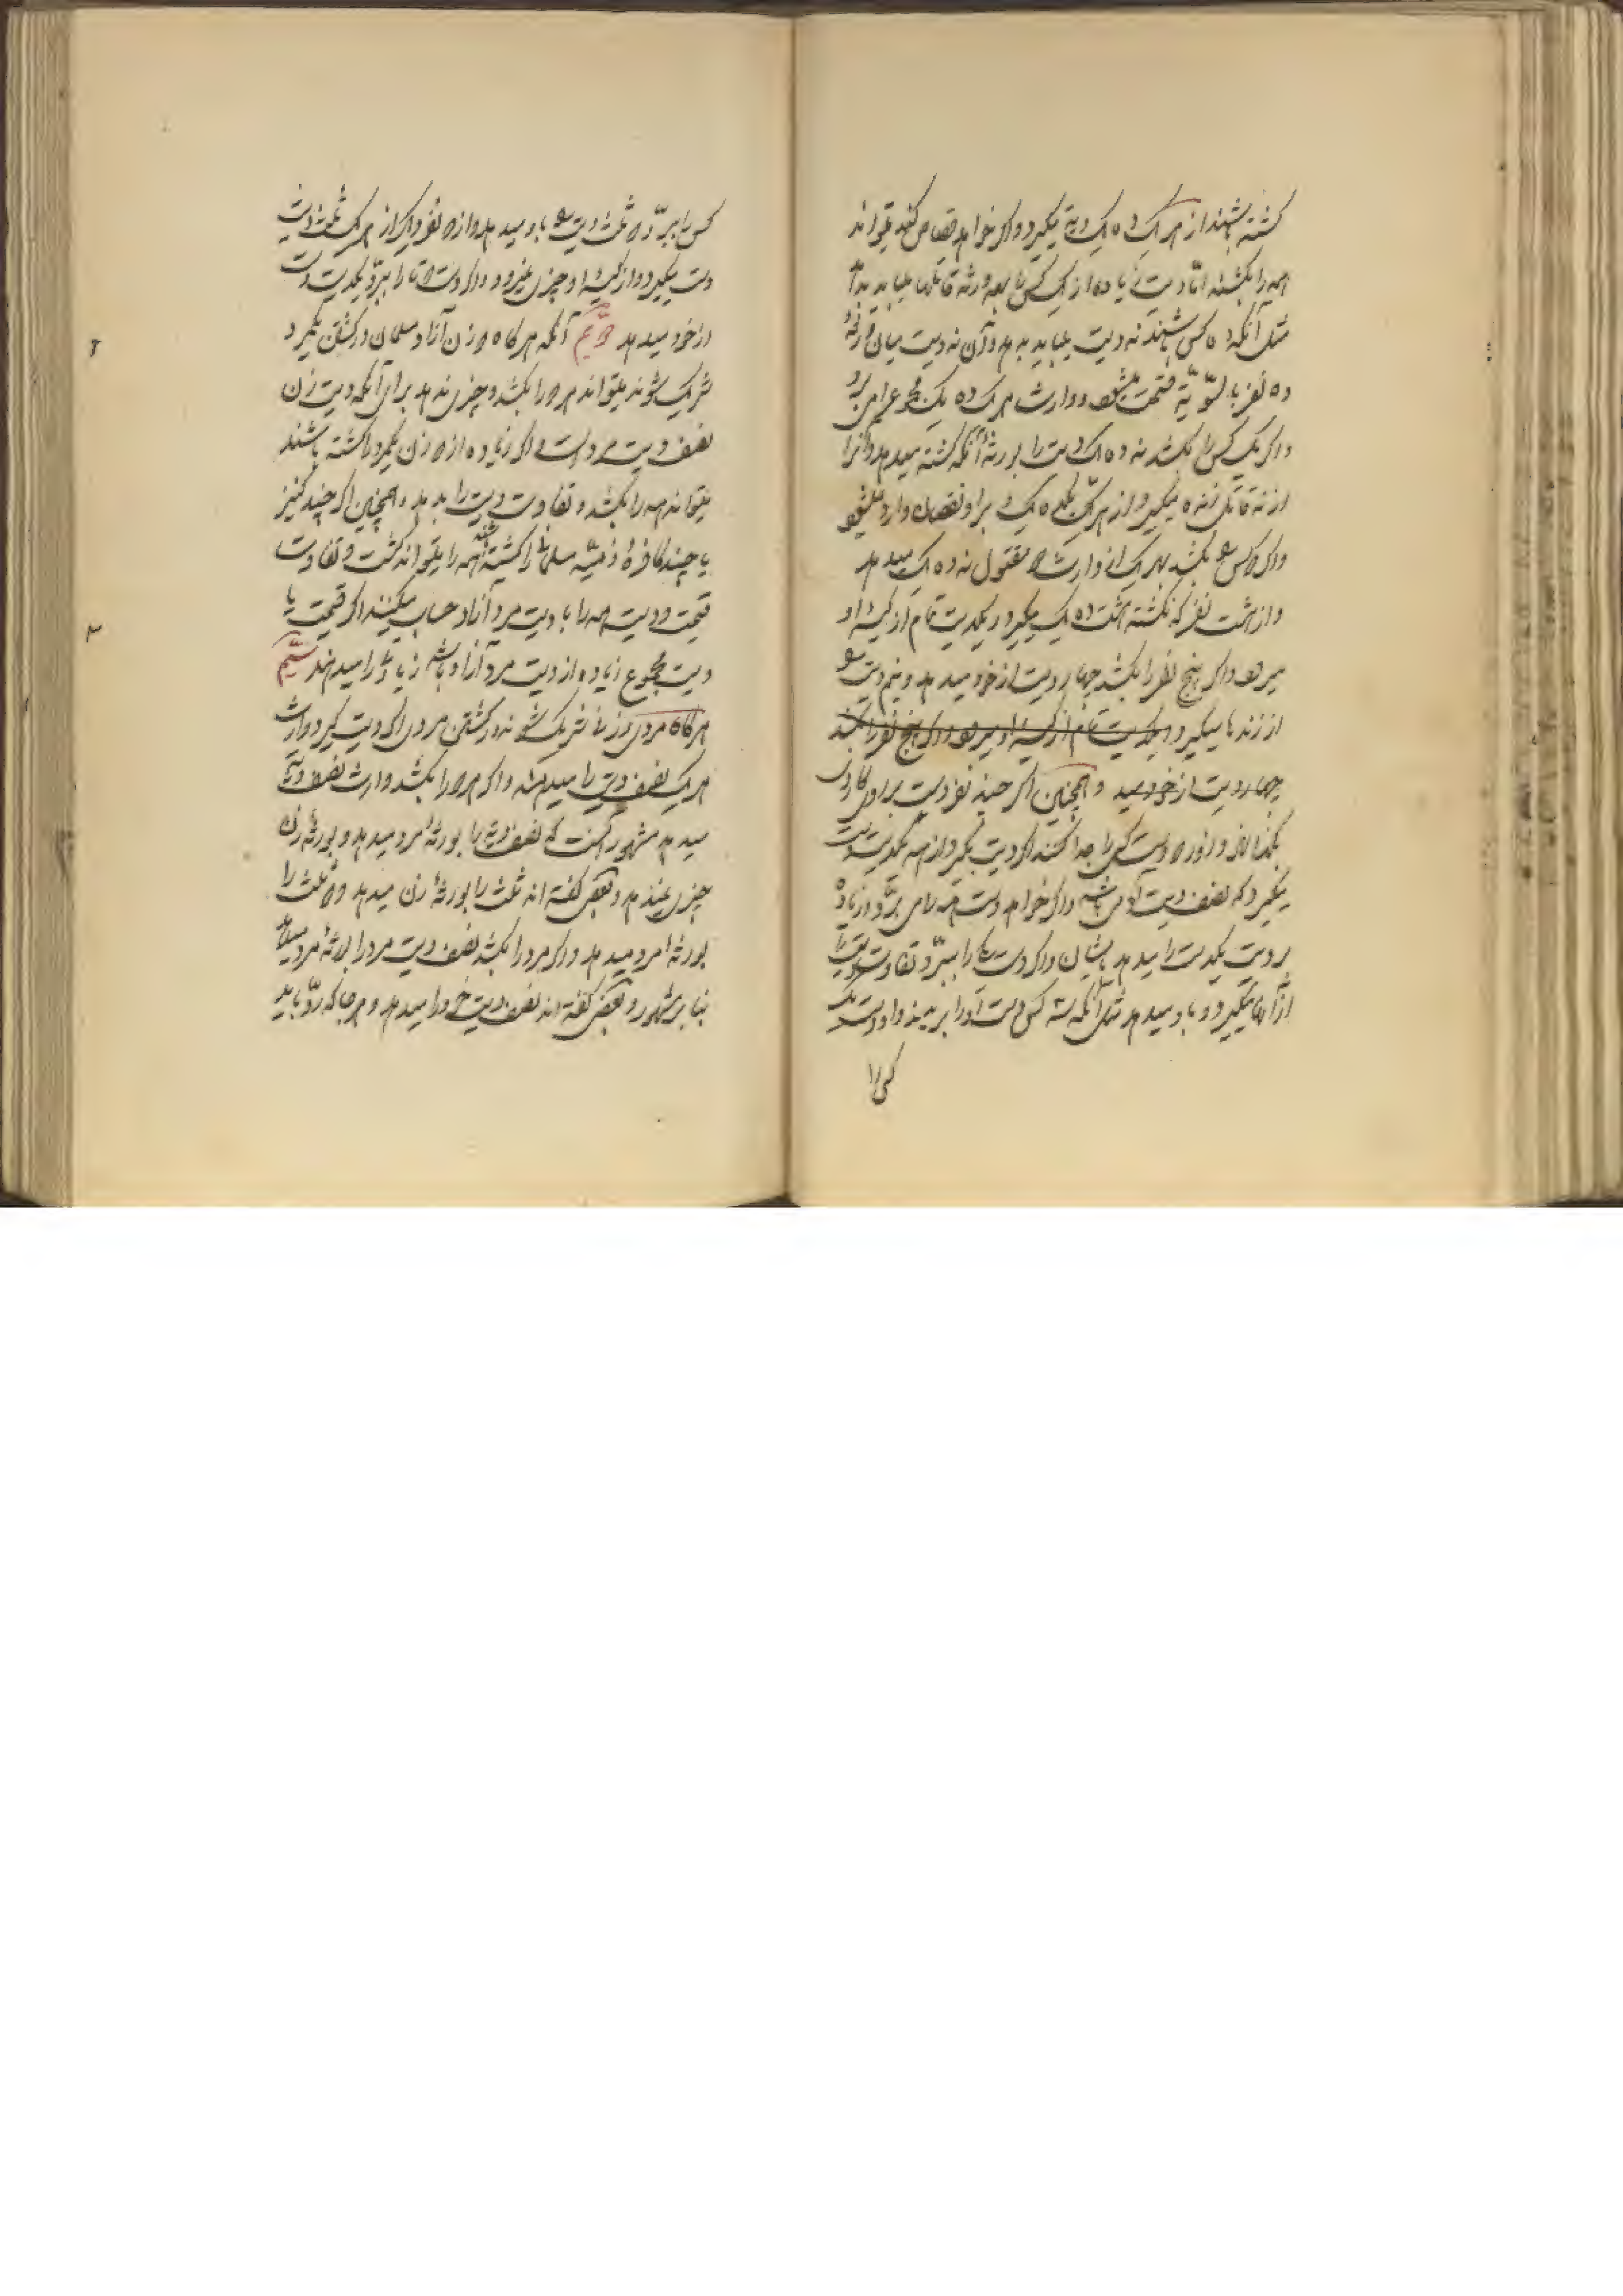 کشته باشند از هر یک ده یک دیه بگیرد و اگر خواهد قصاص کند میتواند
همه را بکشند اما دیت زیاده از یک کس را بورثه قاتلها میباید داد
مثل آنکه ده کس باشند نه دیت میباید بدهد و آن نه دیت میان ورثهٔ
ده نفر بالسویّه قسمت میشود و وارث هر یک ده یک مجموع را میبرد
و اگر یک کس را بکشد نه ده یک دیت را بورثهٔ آنکه کشته میدهد و آنرا
از نه قاتل زنده میگیرد از هر یک ده یک و بر او نقصان وارد نمیشود
و اگر دو کس را بکشد بهر یک از وارث دو مقتول نه ده یک میدهد
و از هشت نفر که نکشته هشت ده یک میگیرد و یکدیت تمام از کیسهٔ او
میرود و اگر پنج نفر را بکشد چهار دیت از خود میدهد و نیم دیت را
از زندها میگیرد و یکدیت تمام از کیسه او میرود و اگر پنج نفر را بکشد
چهار دیت از خود میدهد و همچنین اگر چند نفر دست بر روی کاردی
بگذارند و زور دست کسی را جدا کنند اگر دیت بگیرد از همه یکدیت دست
میگیرد که نصف دیت آدمی باشد و اگر خواهد دست همه را می برد و زیاده
بر دیت یکدست را میدهد بایشان و اگر دست یکی را ببرد تفاوت دیت را
از آنها میگیرد و باو میدهد مثل آنکه سه کس دست او را بریدند و او دست یک
کس را
کس را ببرد دو ثلث دیت را باو میدهد و از دو نفر دیگر از هر یک ثلث دیت
دست میگیرد و از کیسهٔ او چیزی نمیرود و اگر دست دوتا را ببرد یکدیت دست
از خود میدهد دوّیم آنکه هرگاه دو زن آزاد مسلمان در کشتن یکمرد
شریک شوند میتواند هر دو را بکشد و چیزی ندهد برای آنکه دیت زن
نصف دیت مرد است و اگر زیاده از دو زن یکمرد را کشته باشند
میتواند همه را بکشد و تفاوت دیت را بدهد و همچنین اگر چند کنیز
یا چند کافرهٔ ذمّیّه مسلمانی را کشته باشند همه را میتواند کشت و تفاوت
قیمت و دیت همه را با دیت مرد آزاد حساب میکنند اگر قیمت یا
دیت مجموع زیاده از دیت مرد آزاد باشد زیادتی را میدهند سیّم
هرگاه مردی و زنی شریک شوند در کشتن مردی اگر دیت گیرد وارث
هر یک نصف دیت را میدهند و اگر هر دو را بکشد وارث نصف دیت
میدهد مشهور آنست که نصف دیه را بورثهٔ مرد میدهد و بورثهٔ زن
چیزی نمیدهد و بعضی گفته اند ثلث را بورثهٔ زن میدهد و دو ثلث را
بورثهٔ مرد میدهد و اگر مرد را بکشد نصف دیت مرد را بورثهٔ مرد میدهد
بنا بر مشهور و بعضی گفته اند نصف دیت خود را میدهد و هرجا که ردّ باید